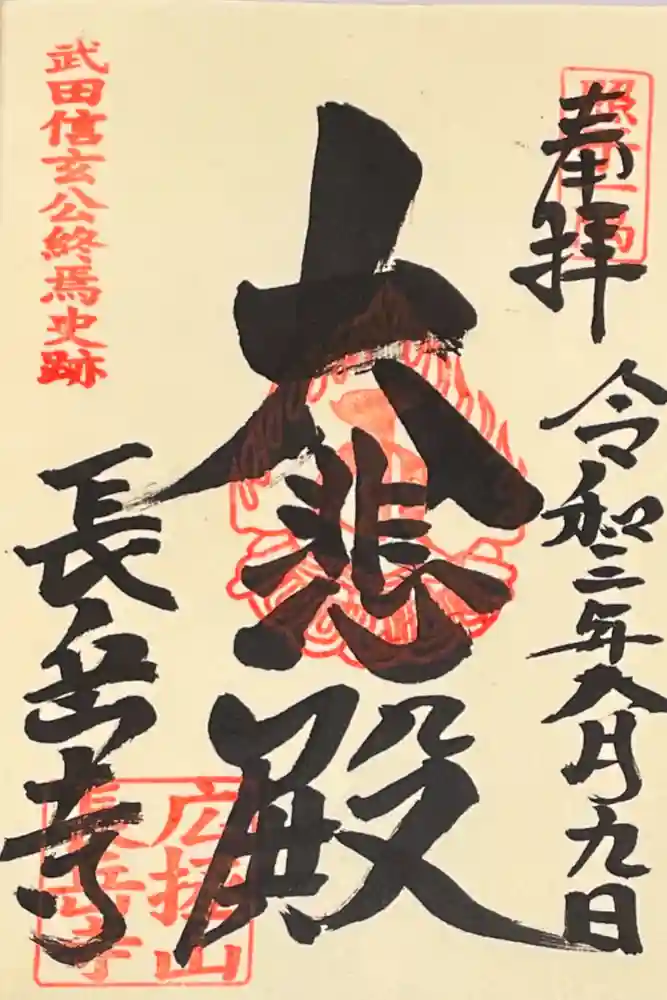 奉拝
令和三年六月九日
大悲殿
武田信玄公終焉史跡
長岳寺
広拯山
長岳寺